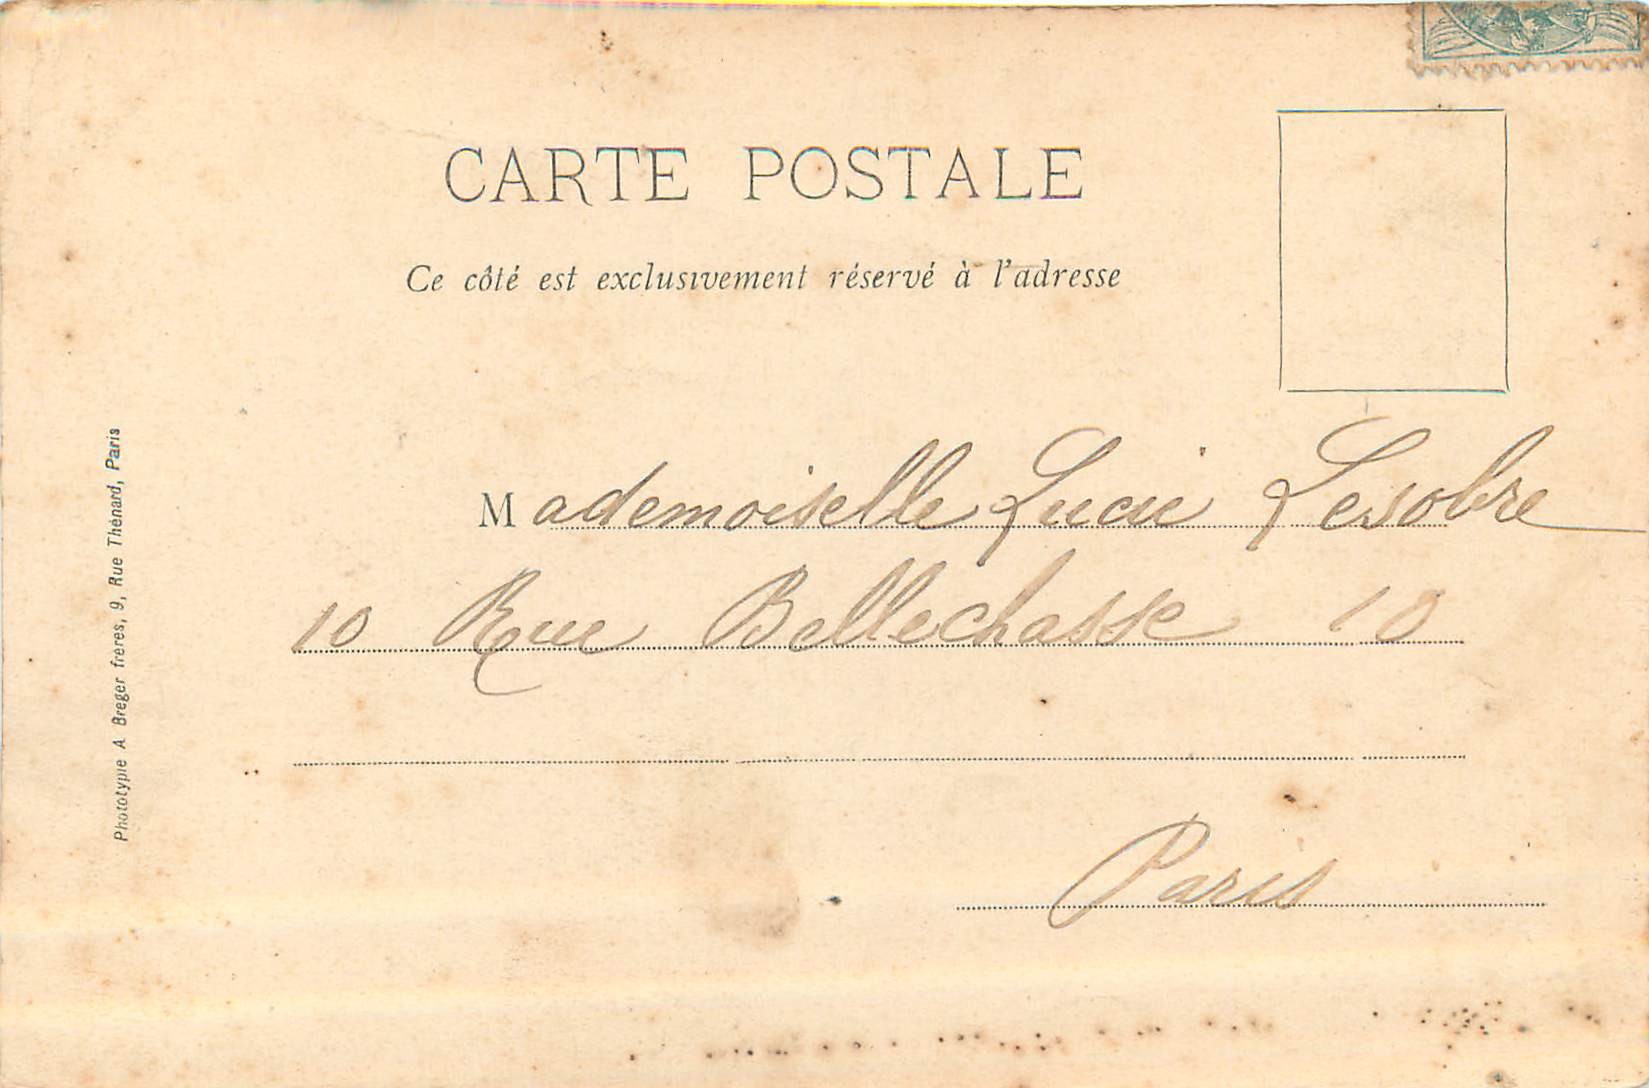 CARTE POSTALE
Ce côté est exclusivement réservé à l'adresse
Mademoiselle Lucie Lesobre
10 Rue Bellechasse 10
Paris
Phototypie A. Breger frères, 9, Rue Thénard, Paris